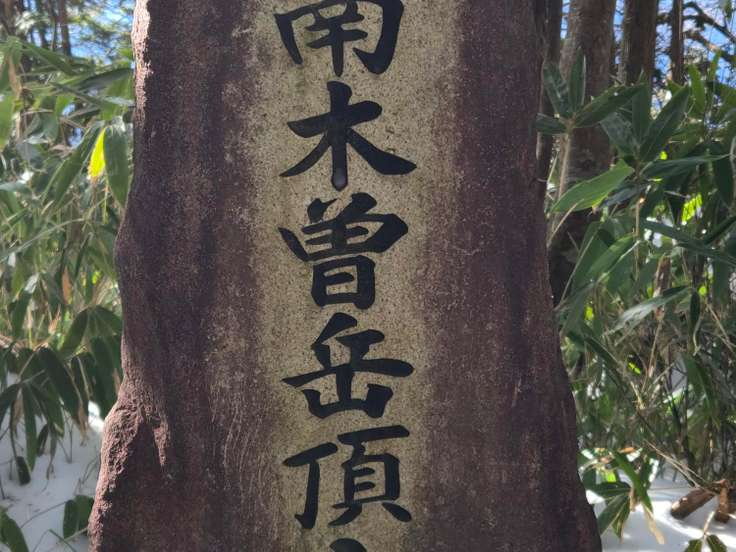 南木曽岳頂